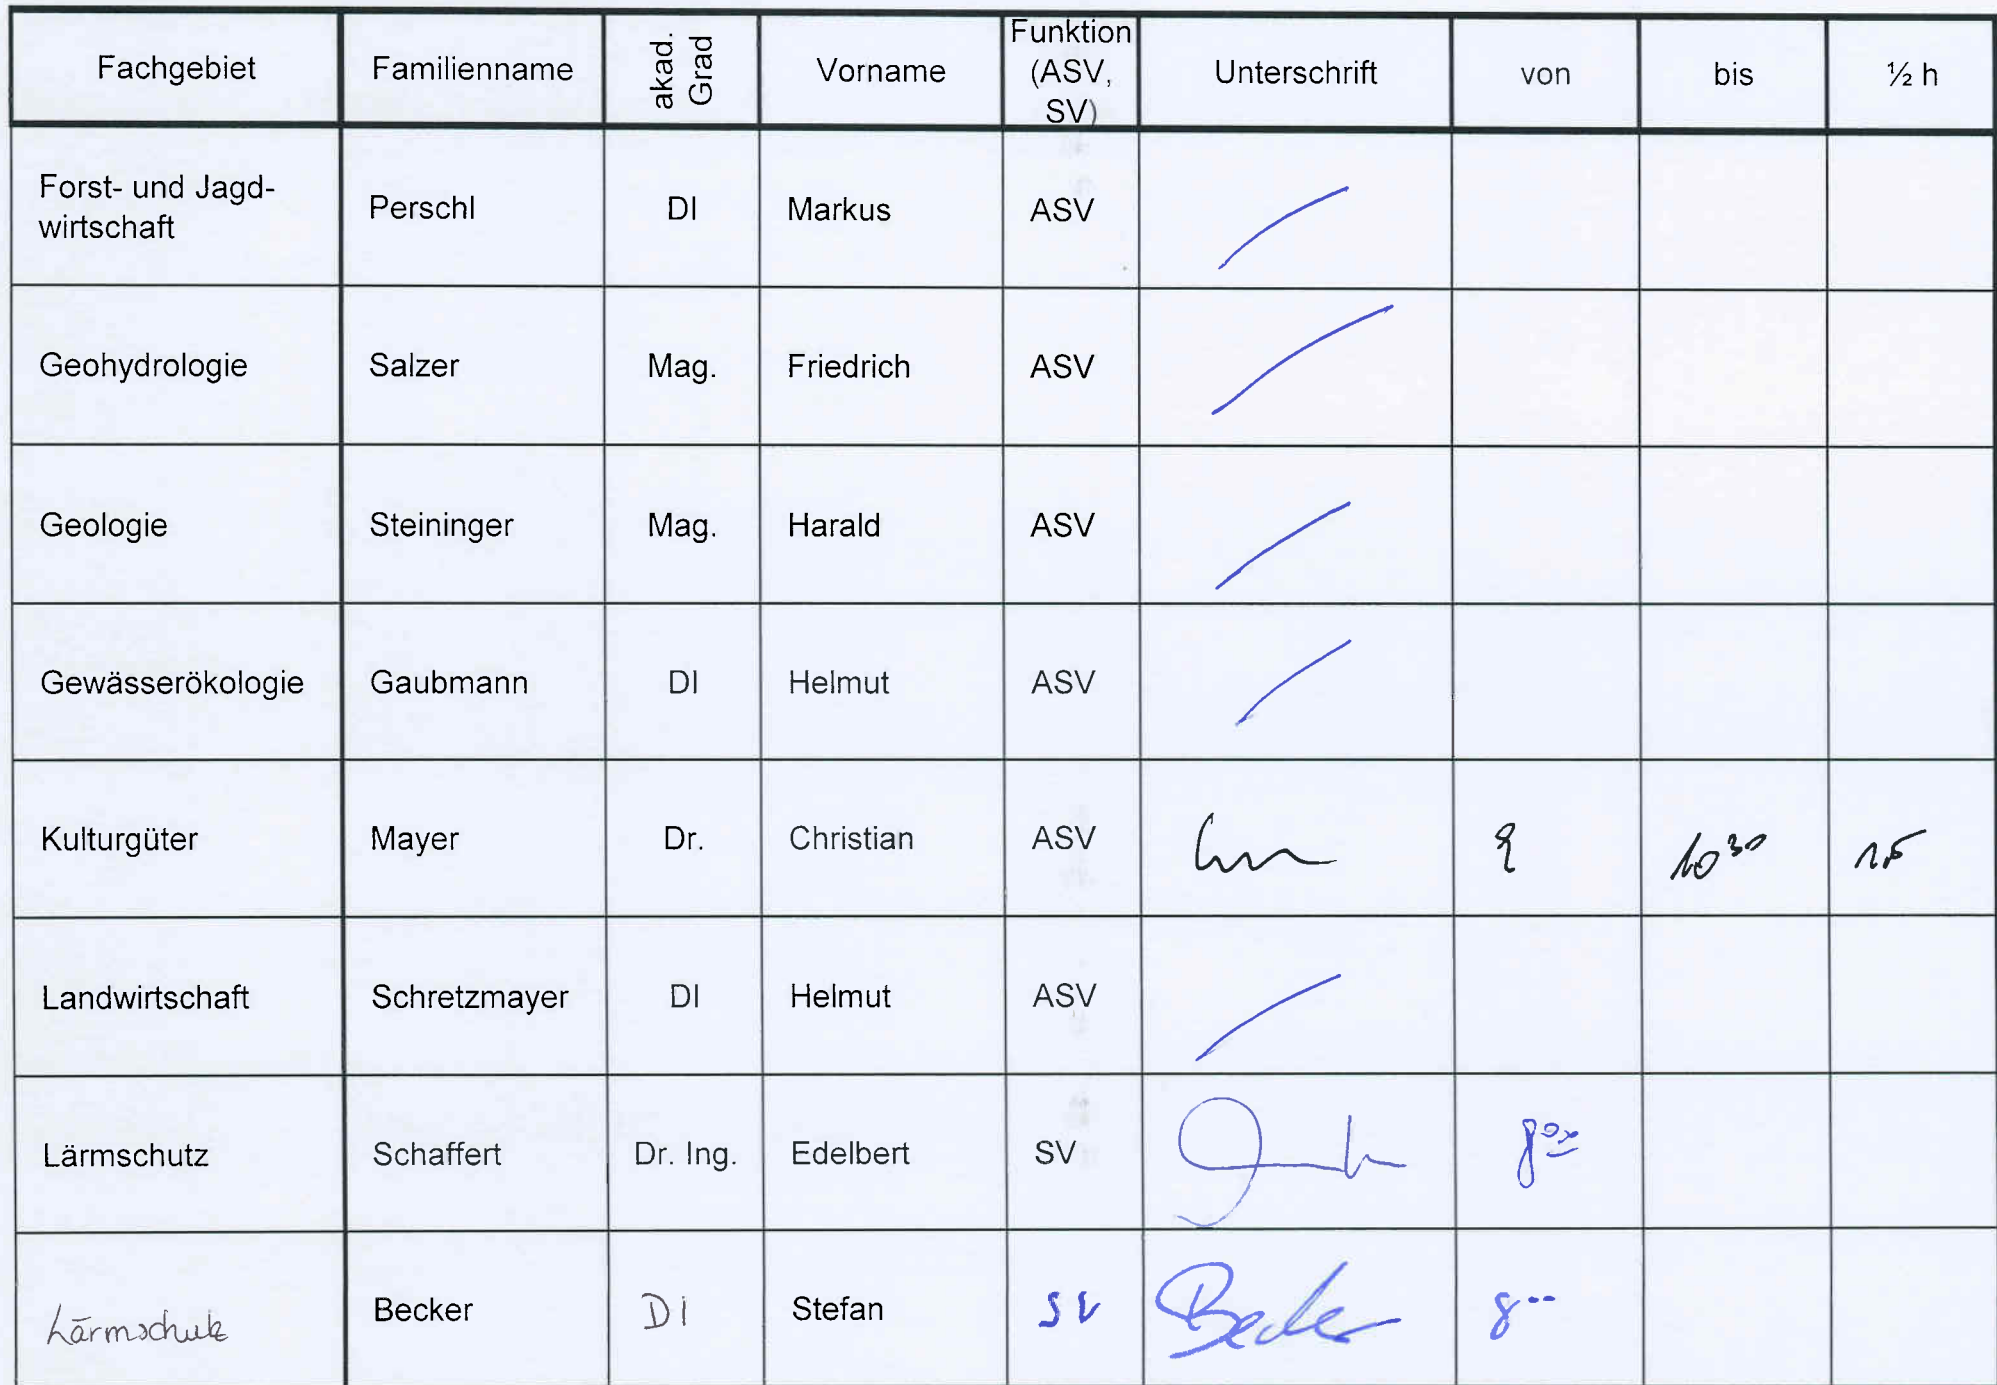 Fachgebiet Familienname akad. Grad Vorname Funktion (ASV, SV) Unterschrift von bis ½ h
Forst- und Jagd-
wirtschaft Perschl DI Markus ASV
Geohydrologie Salzer Mag. Friedrich ASV
Geologie Steininger Mag. Harald ASV
Gewässerökologie Gaubmann DI Helmut ASV
Kulturgüter Mayer Dr. Christian ASV 10³⁰
Landwirtschaft Schretzmayer DI Helmut ASV
Lärmschutz Schaffert Dr. Ing. Edelbert SV 8⁰⁰
Lärmschutz Becker DI Stefan SV Becker 8⁰⁰